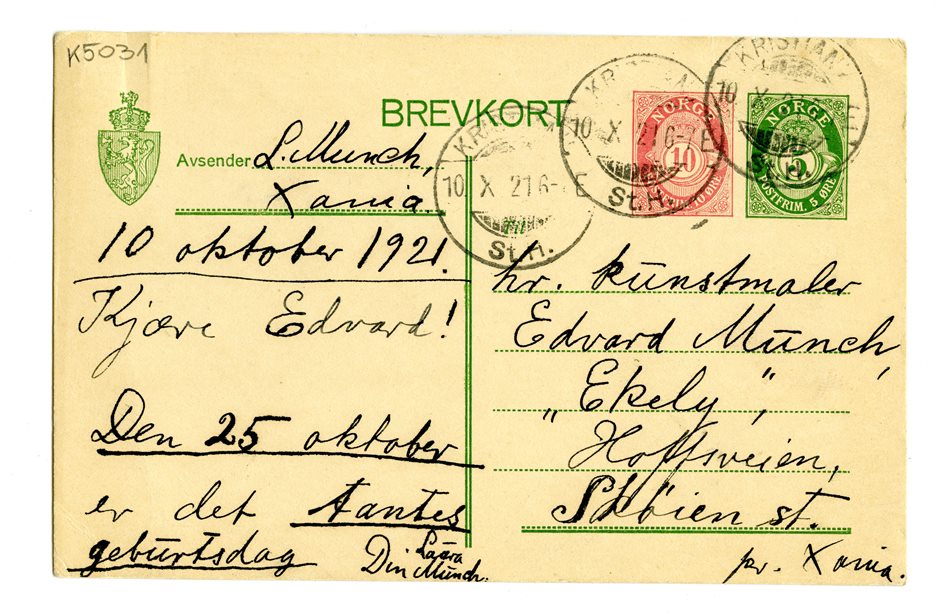 K5031
BREVKORT
Avsender L. Munch,
Xania.
10 oktober 1921.
Kjære Edvard!
Den 25 oktober
er det tantes
geburtsdag
Din Laura
Munch.
KRISTIANIA
10 X 21 6-7 E
St.H.
KRISTIANIA
10 X 21 6-7 E
St.H.
KRISTIANIA
10 X 21
St.H.
NORGE
10
NORGE
5
POSTFRIM. 5 ØRE
hr. kunstmaler
Edvard Munch,
„Ekely",
Hoffsveien,
Skøien st.
pr. Xania.